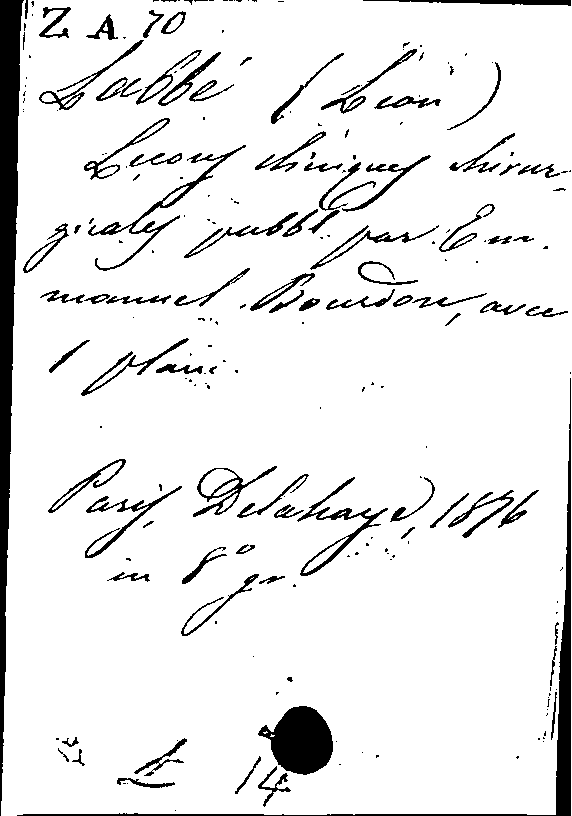 Z A 70
Labbé (Léon)
Leçons cliniques chirur-
gicales publ. par Em.
manuel Bourdon, avec
1 planc.
Paris, Delahaye, 1876
in 8° gr.
14